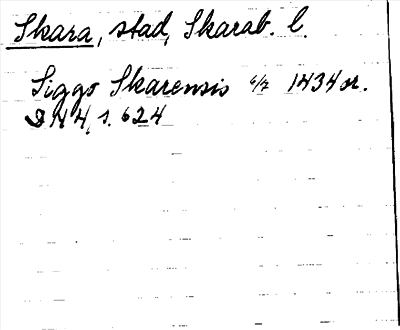 Skara, stad, Skarab. l.
Siggo Skarensis 6/7 1434 or.
SH 4, s. 624